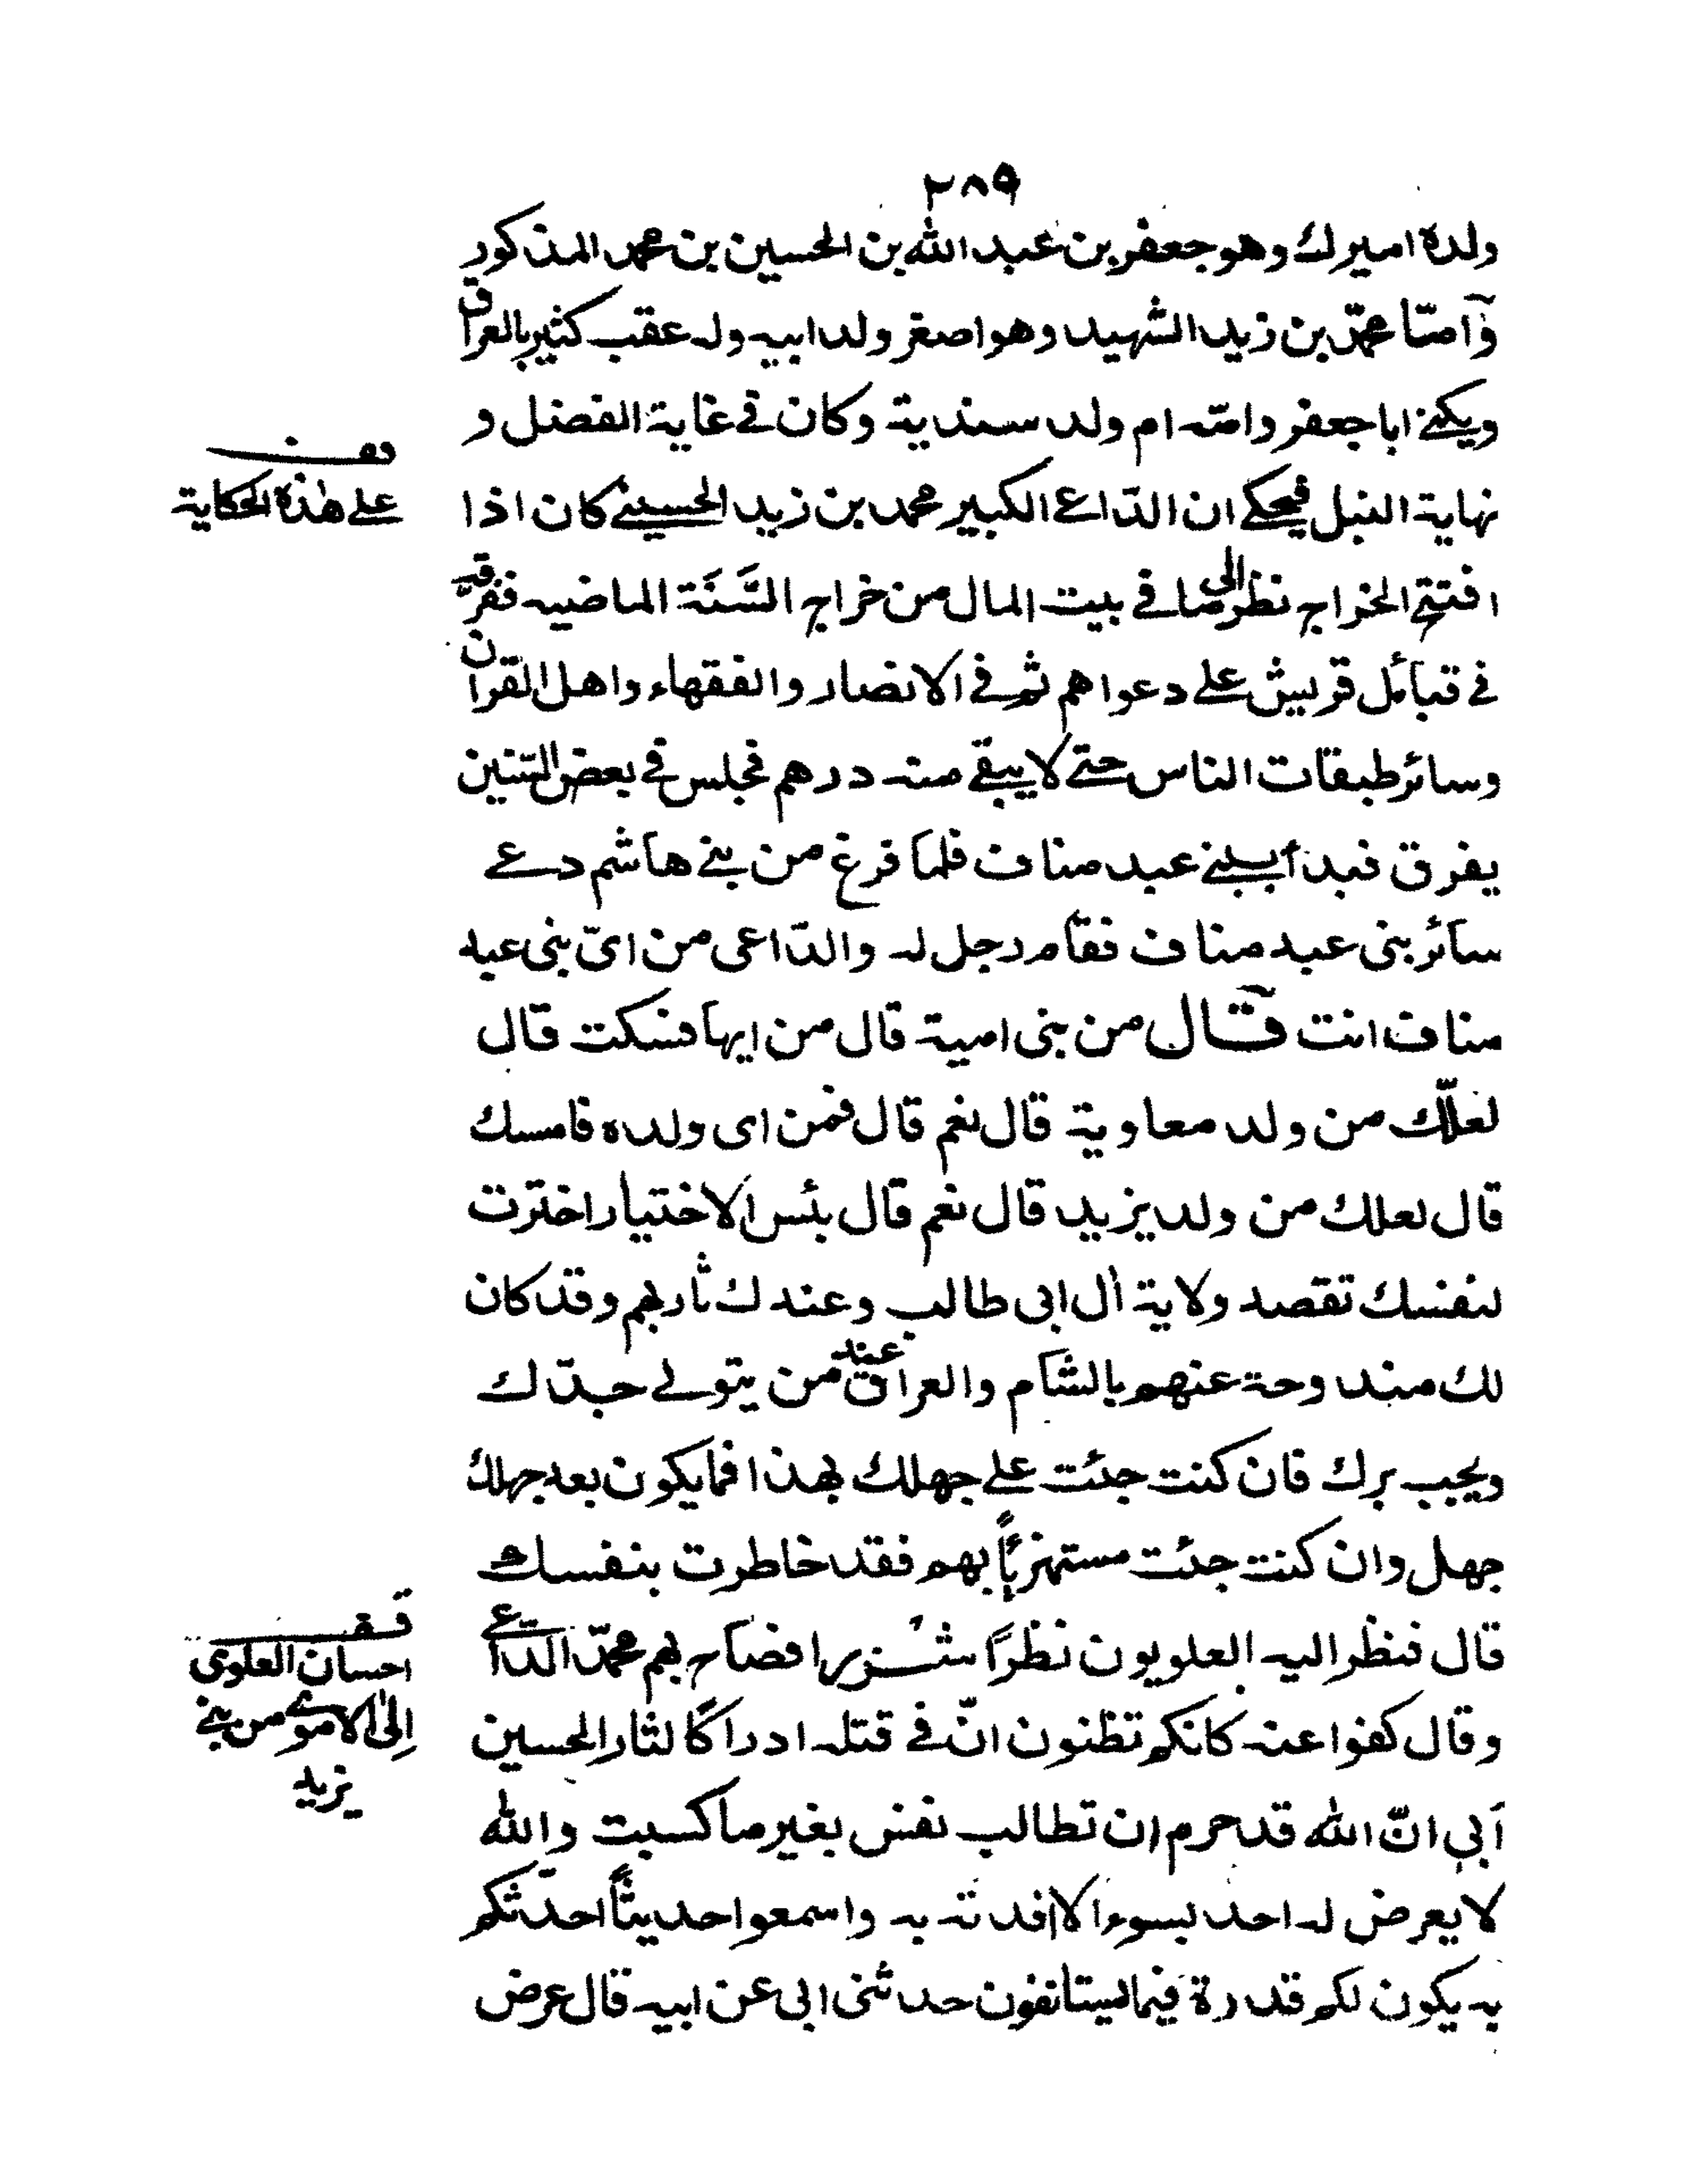 ٢٨٩
ولده اميرك وهو جعفر بن عبد الله بن الحسين بن محمد المذكور
وآمّا محمّد بن زيد الشهيد وهو اصغر ولد ابيه وله عقب كثير بالعراق
ويكنے ابا جعفر وامّه ام ولد سندية وكان في غاية الفضل و
وقف
على هذه الحكاية
نهاية النبل فيحكے ان الدّاعے الكبير محمد بن زيد الحسينے كان اذا
افتتح الخراج نظر الى ما في بيت المال من خراج السَّنَة الماضيه ففرّقه
في قبائل قريش علے دعواهم ثم في الانصار والفقهاء واهل القران
وسائر طبقات الناس حتے لا يبقے منه درهم فجلس في بعض السّنين
يفرق فبدأ ببنے عبد مناف فلما فرغ من بنے هاشم دعے
سائر بنى عبد مناف فقام رجل له والدّاعى من اىّ بنى عبد
مناف انت قال من بنى امية قال من ايها فسكت قال
لعلّك من ولد معاوية قال نعم قال فمن اى ولده فامسك
قال لعلك من ولد يزيد قال نعم قال بئس الاختيار اخترت
لنفسك تقصد ولاية اٰل ابى طالب وعندك ثارهم وقد كان
لك مندوحة عنهم بالشام والعراق عند من يتولے جدّك
ويجب برك فان كنت جئت علے جهلك بهذا فما يكون بعد جهلك
جهل وان كنت جئت مستهزئاً بهم فقد خاطرت بنفسك
قال فنظر اليه العلويون نظرًا شزرا فصاح بهم محمّد الدّاعے
قف
احسان العلوى
اِلىٰ الاموے من بنے
يزيد
وقال كفوا عنه كانكم تظنون انّ في قتله ادراكًا لثار الحسين
اَبى انّ الله قد حرم ان تطالب نفس بغير ما كسبت والله
لا يعرض له احد بسوء الا اقدته به واسمعوا حديثاً احدّثكم
به يكون لكم قدرة فيما تستانفون حدثنى ابى عن ابيه قال عرض